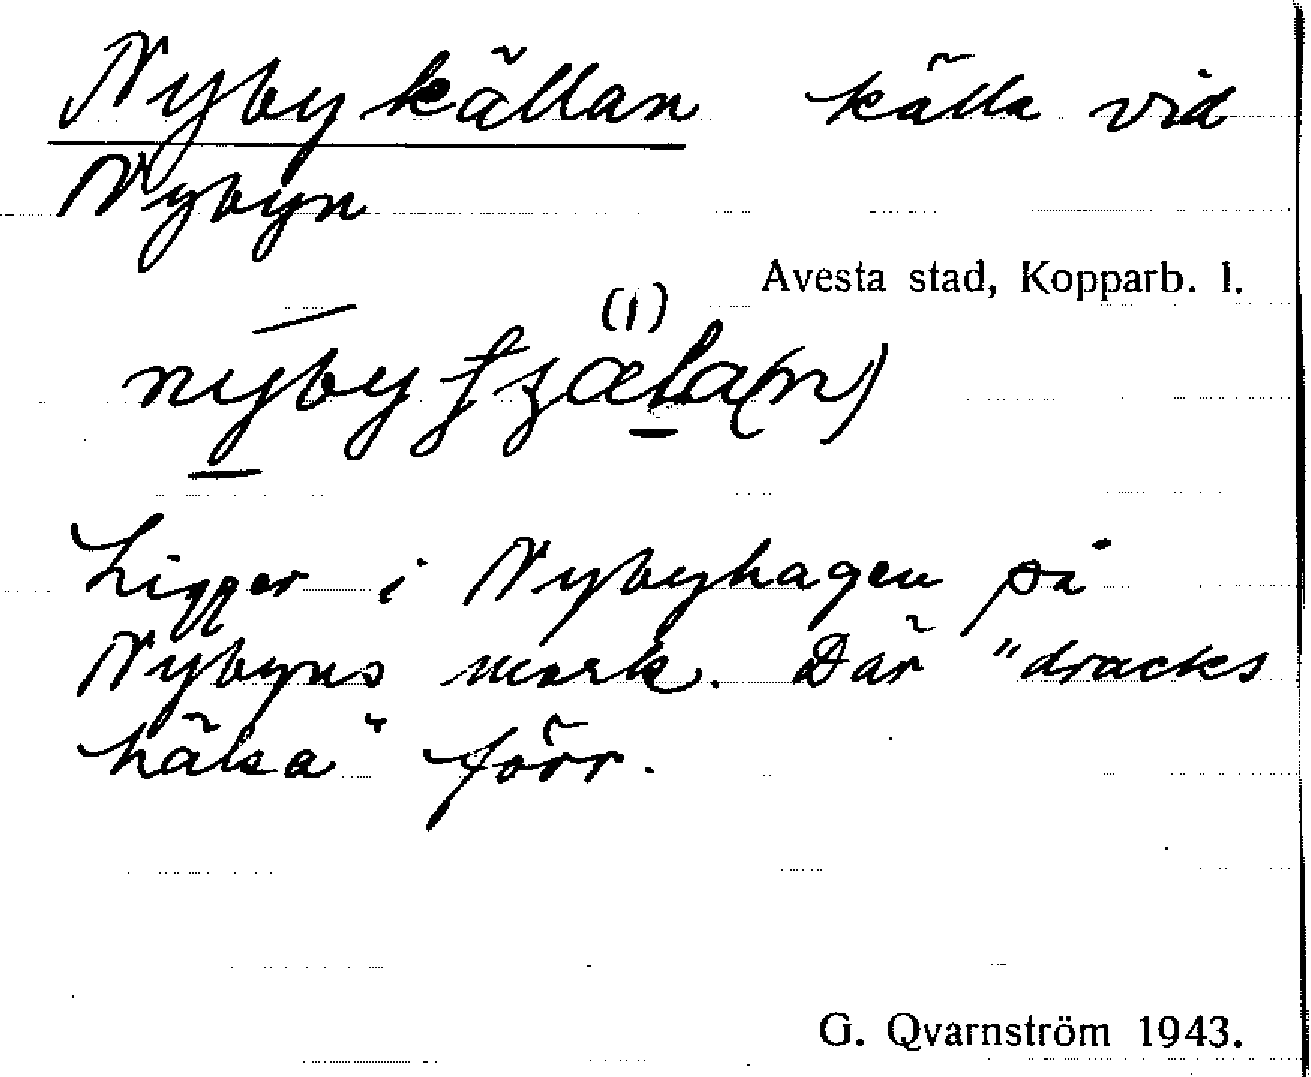 Nybykällan källa vid
Nybyn
Avesta stad, Kopparb. l.
(l)
Ligger i Nybyhagen på
Nybyns mark. Där "dracks
hälsa" förr.
G. Qvarnström 1943.